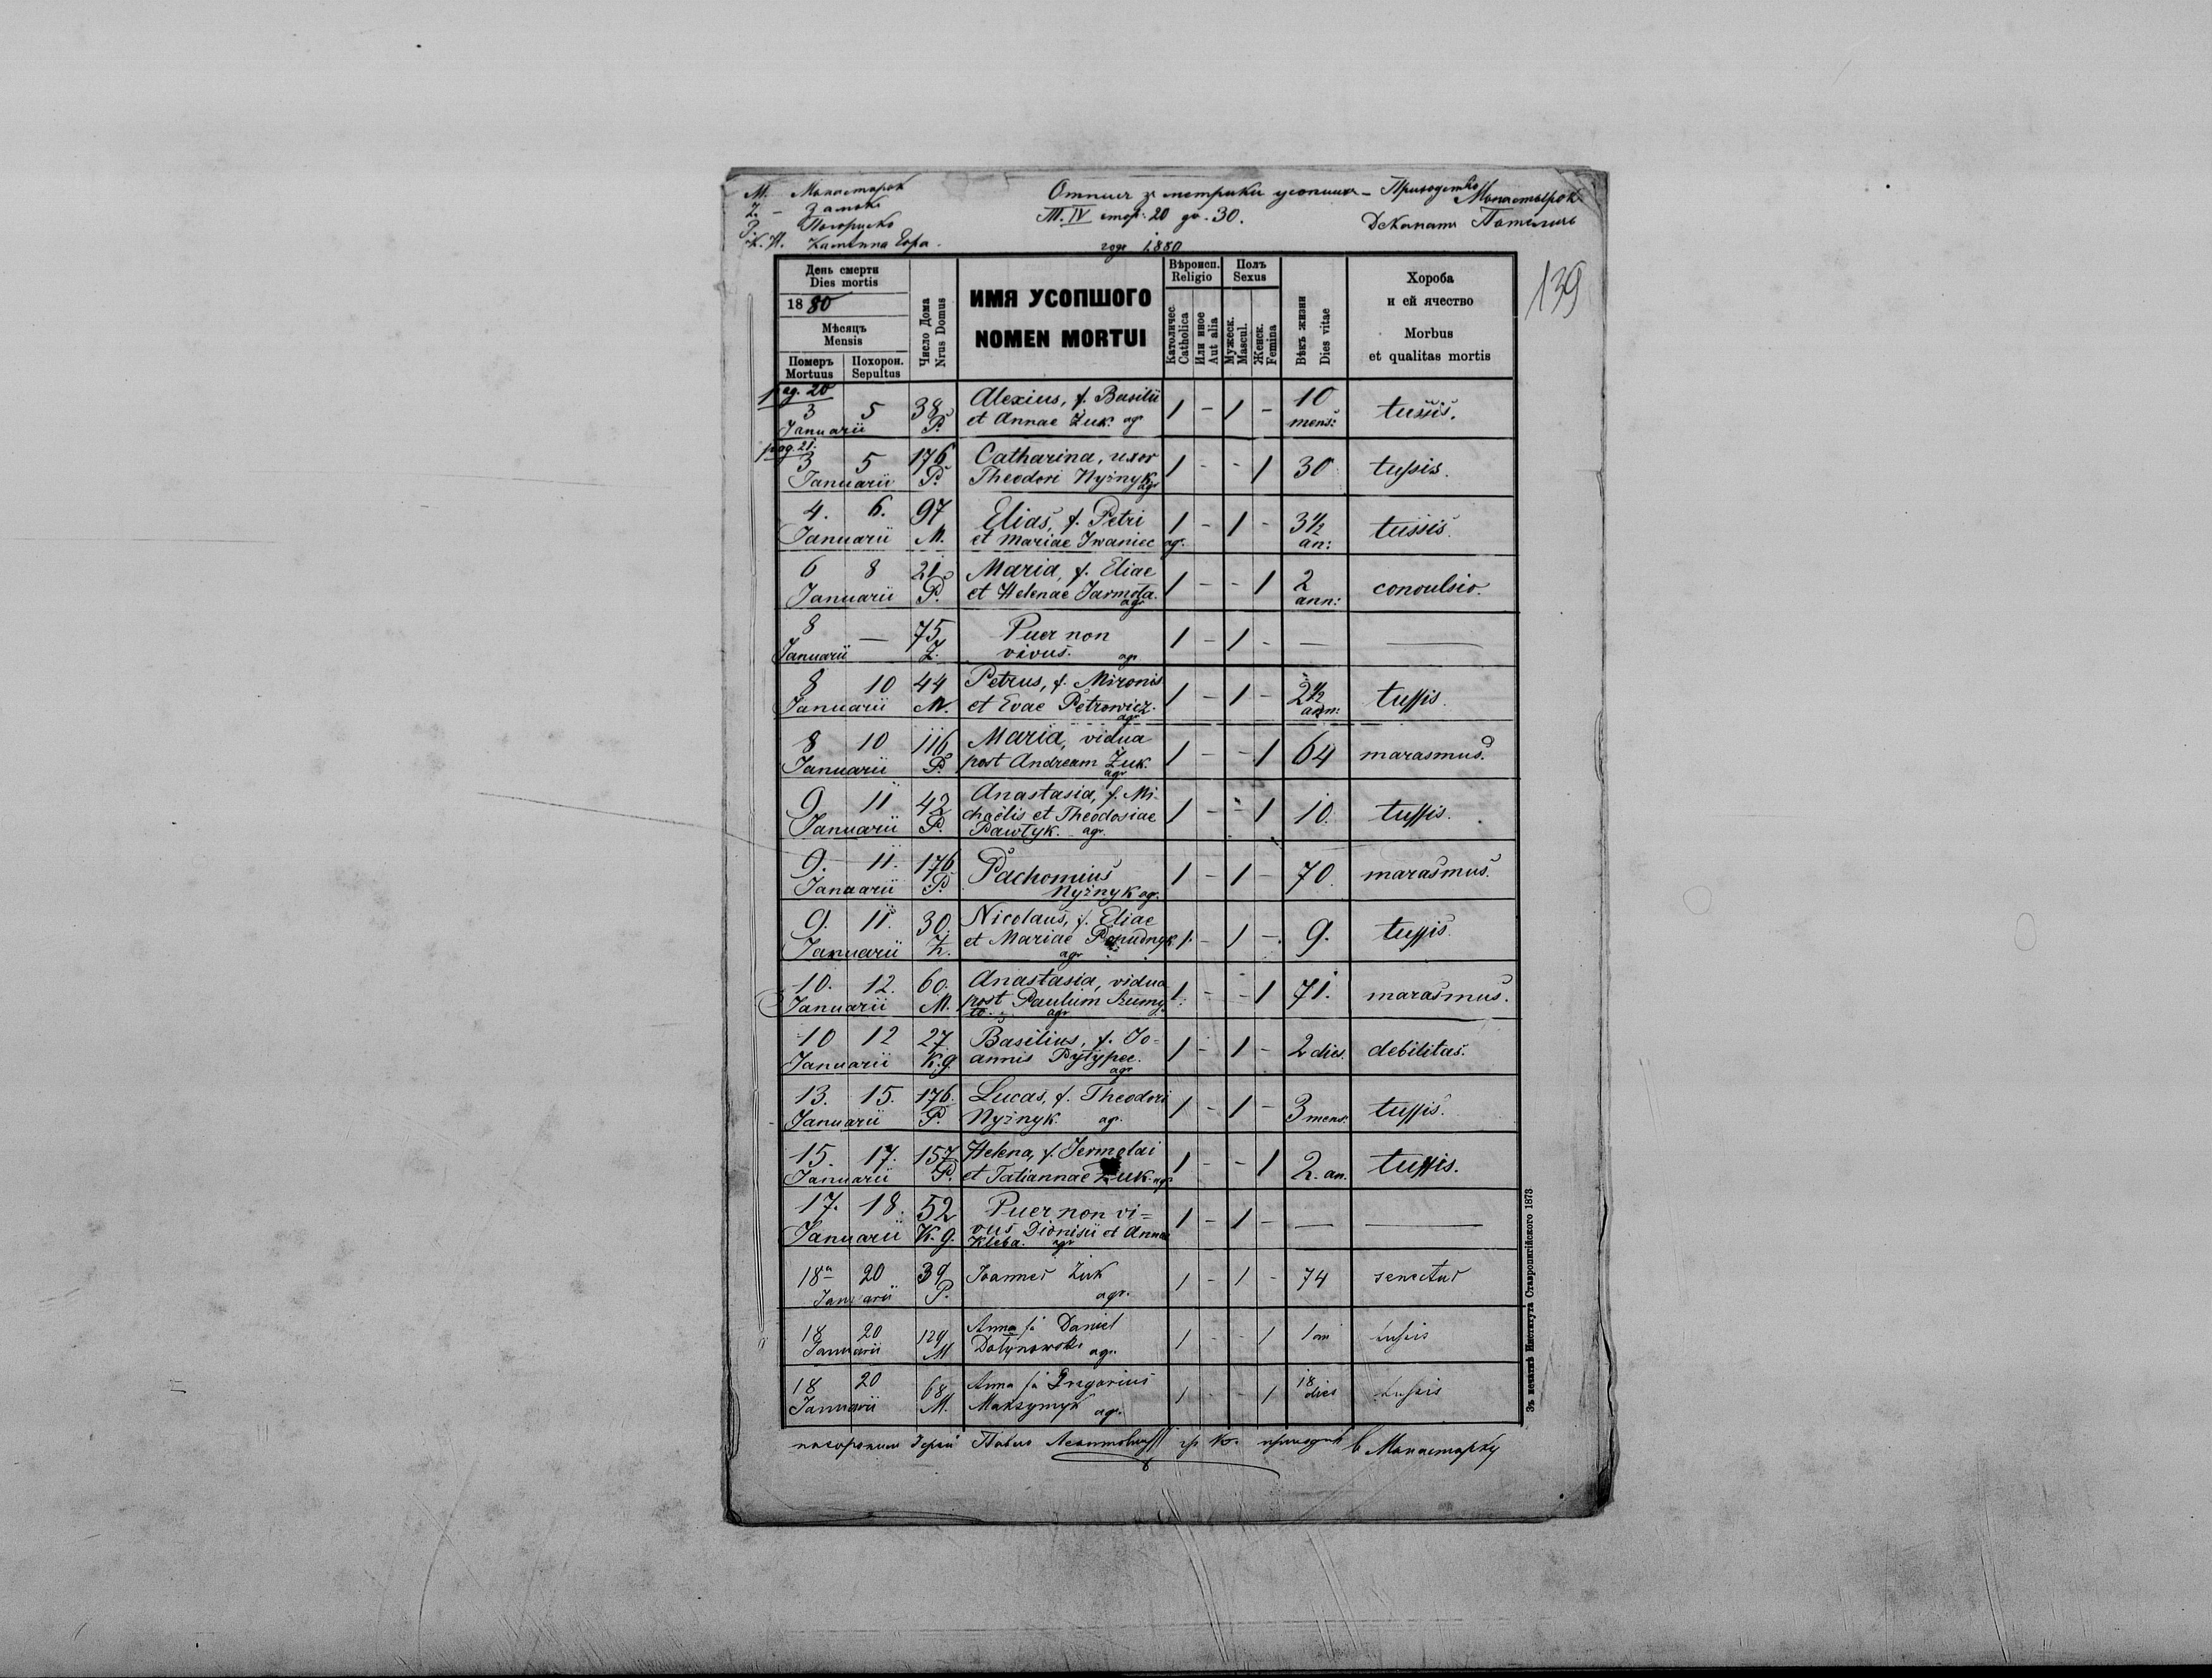 М. Монастырок
Z. - Замок
P. Погориско
К. Н. Каменна Гора.
Отпис з метрики усопших - Приходство Монастырок
М. IV стор: 20 до 30. Деканат Потелич
года 1880
139
День смерти
Dies mortis
1880
Мѣсяцъ
Mensis
Померъ
Mortuus
Похорон.
Sepultus
Число Дома
Nrus Domus
ИМЯ УСОПШОГО
NOMEN MORTUI
Вѣроисп.
Religio
Католичес.
Catholica
Или иное
Aut alia
Полъ
Sexus
Мужеск.
Mascul.
Женск.
Femina
Вѣкъ жизни
Dies vitae
Хороба
и ей ячество
Morbus
et qualitas mortis
pag. 20
3 5 38 Alexius, f. Basilii 1 - 1 - 10 tussis.
Januarii P. et Annae Żuk. agr mens:
pag. 21.
3 5 176 Catharina, uxor 1 - - 1 30 tussis.
Januarii P. Theodori Nyżnyk agr
4. 6. 97 Elias, f. Petri 1 - 1 - 3 1/2 tussis.
Januarii M. et Mariae Iwaniec agr. an:
6 8 21 Maria, f. Eliae 1 - - 1 2 convulsio.
Januarii P. et Helenae Jarmoła. agr ann:
8 — 75 Puer non 1 - 1 - — —
Januarii Z. vivus. agr
8 10 44 Petrus, f. Mironis 1 - 1 - 2 1/2 tussis.
Januarii M. et Evae Petrowicz. agr ann:
8 10 116 Maria, vidua 1 - - 1 64 marasmus.
Januarii P. post Andream Żuk. agr
9 11 42 Anastasia, f. Mi- 1 - - 1 10. tussis.
Januarii P. chaëlis et Theodosiae
Pawłyk. agr.
9. 11. 176 Pachomius 1 - 1 - 70. marasmus.
Januarii P. Nyżnyk agr.
9. 11. 30. Nicolaus, f. Eliae 1. - 1 -. 9. tussis.
Januarii Z. et Mariae
agr
10. 12. 60. Anastasia, vidua 1 - - 1 71. marasmus.
Januarii M. post Paulum Szumy
ło. agr
10 12 27 Basilius, f. Jo- 1 - 1 - 2 dies. debilitas.
Januarii K.g. annis Pyłypec. agr
13. 15. 176. Lucas, f. Theodori 1 - 1 - 3 mens. tussis.
Januarii P. Nyżnyk. agr.
15. 17. 157 Helena, f. Jermolai 1 - - 1 2. an. tussis.
Januarii P. et Tatiannae Żuk. agr
17. 18. 52 Puer non vi= 1 - 1 - — —
Januarii K. g. vus Dionisii et Annae
Kleba. agr
18a 20 39 Joannes Żuk 1 - 1 - 74 senectus
Januarii P. agr.
18 20 129 Anna fa Daniel 1 - - 1 1 an tussis
Januarii M Dołynowski agr.
18 20 68 Anna fa Gregorius 1 - - 1 18 dies tussis
Januarii M. Maksymyk agr.
похоронил Іерей Павло гр. к. приходник в Монастырку
Зъ печатнѣ Института Ставропигійского 1873